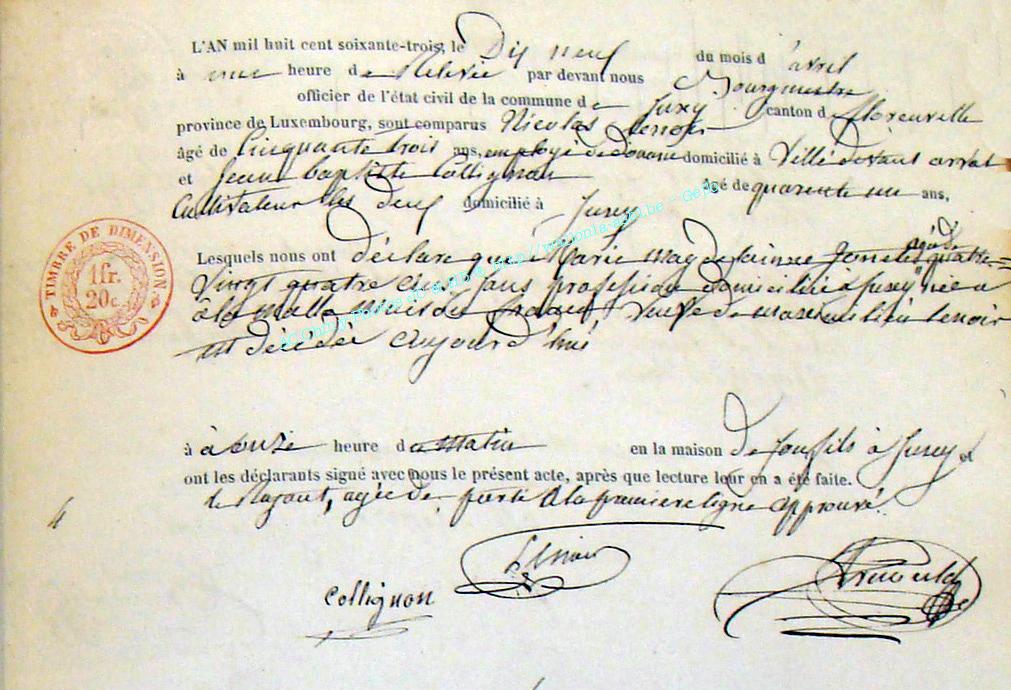 L'AN mil huit cent soixante-trois, le Dix neuf du mois d'avril
à une heure de Relevée par devant nous Bourgmestre
officier de l'état civil de la commune de Jusey canton de florenville
province de Luxembourg, sont comparus Nicolas Lenoir
âgé de Cinquante trois ans, employé de Douane domicilié à Ville devant arrat
et Jean baptiste Collignon âgé de quarente un ans,
Cultivateur les deux domicilié à Jusey
Lesquels nous ont déclaré que Marie Magdelainne agée de quatre=
Vingt quatre ans sans profession domicilié à Jusey née a
à la Malla Veufve de Maximilien lenoir
est décédée aujourd'hui
à à onze heure du Matin en la maison de son fils à Jusey et
ont les déclarants signé avec nous le présent acte, après que lecture leur en a été faite.
le Rajout, agée de porté à la premiere ligne approuvé.
4
Lenoir
Collignon
TIMBRE DE DIMENSION
1 fr.
20 c.